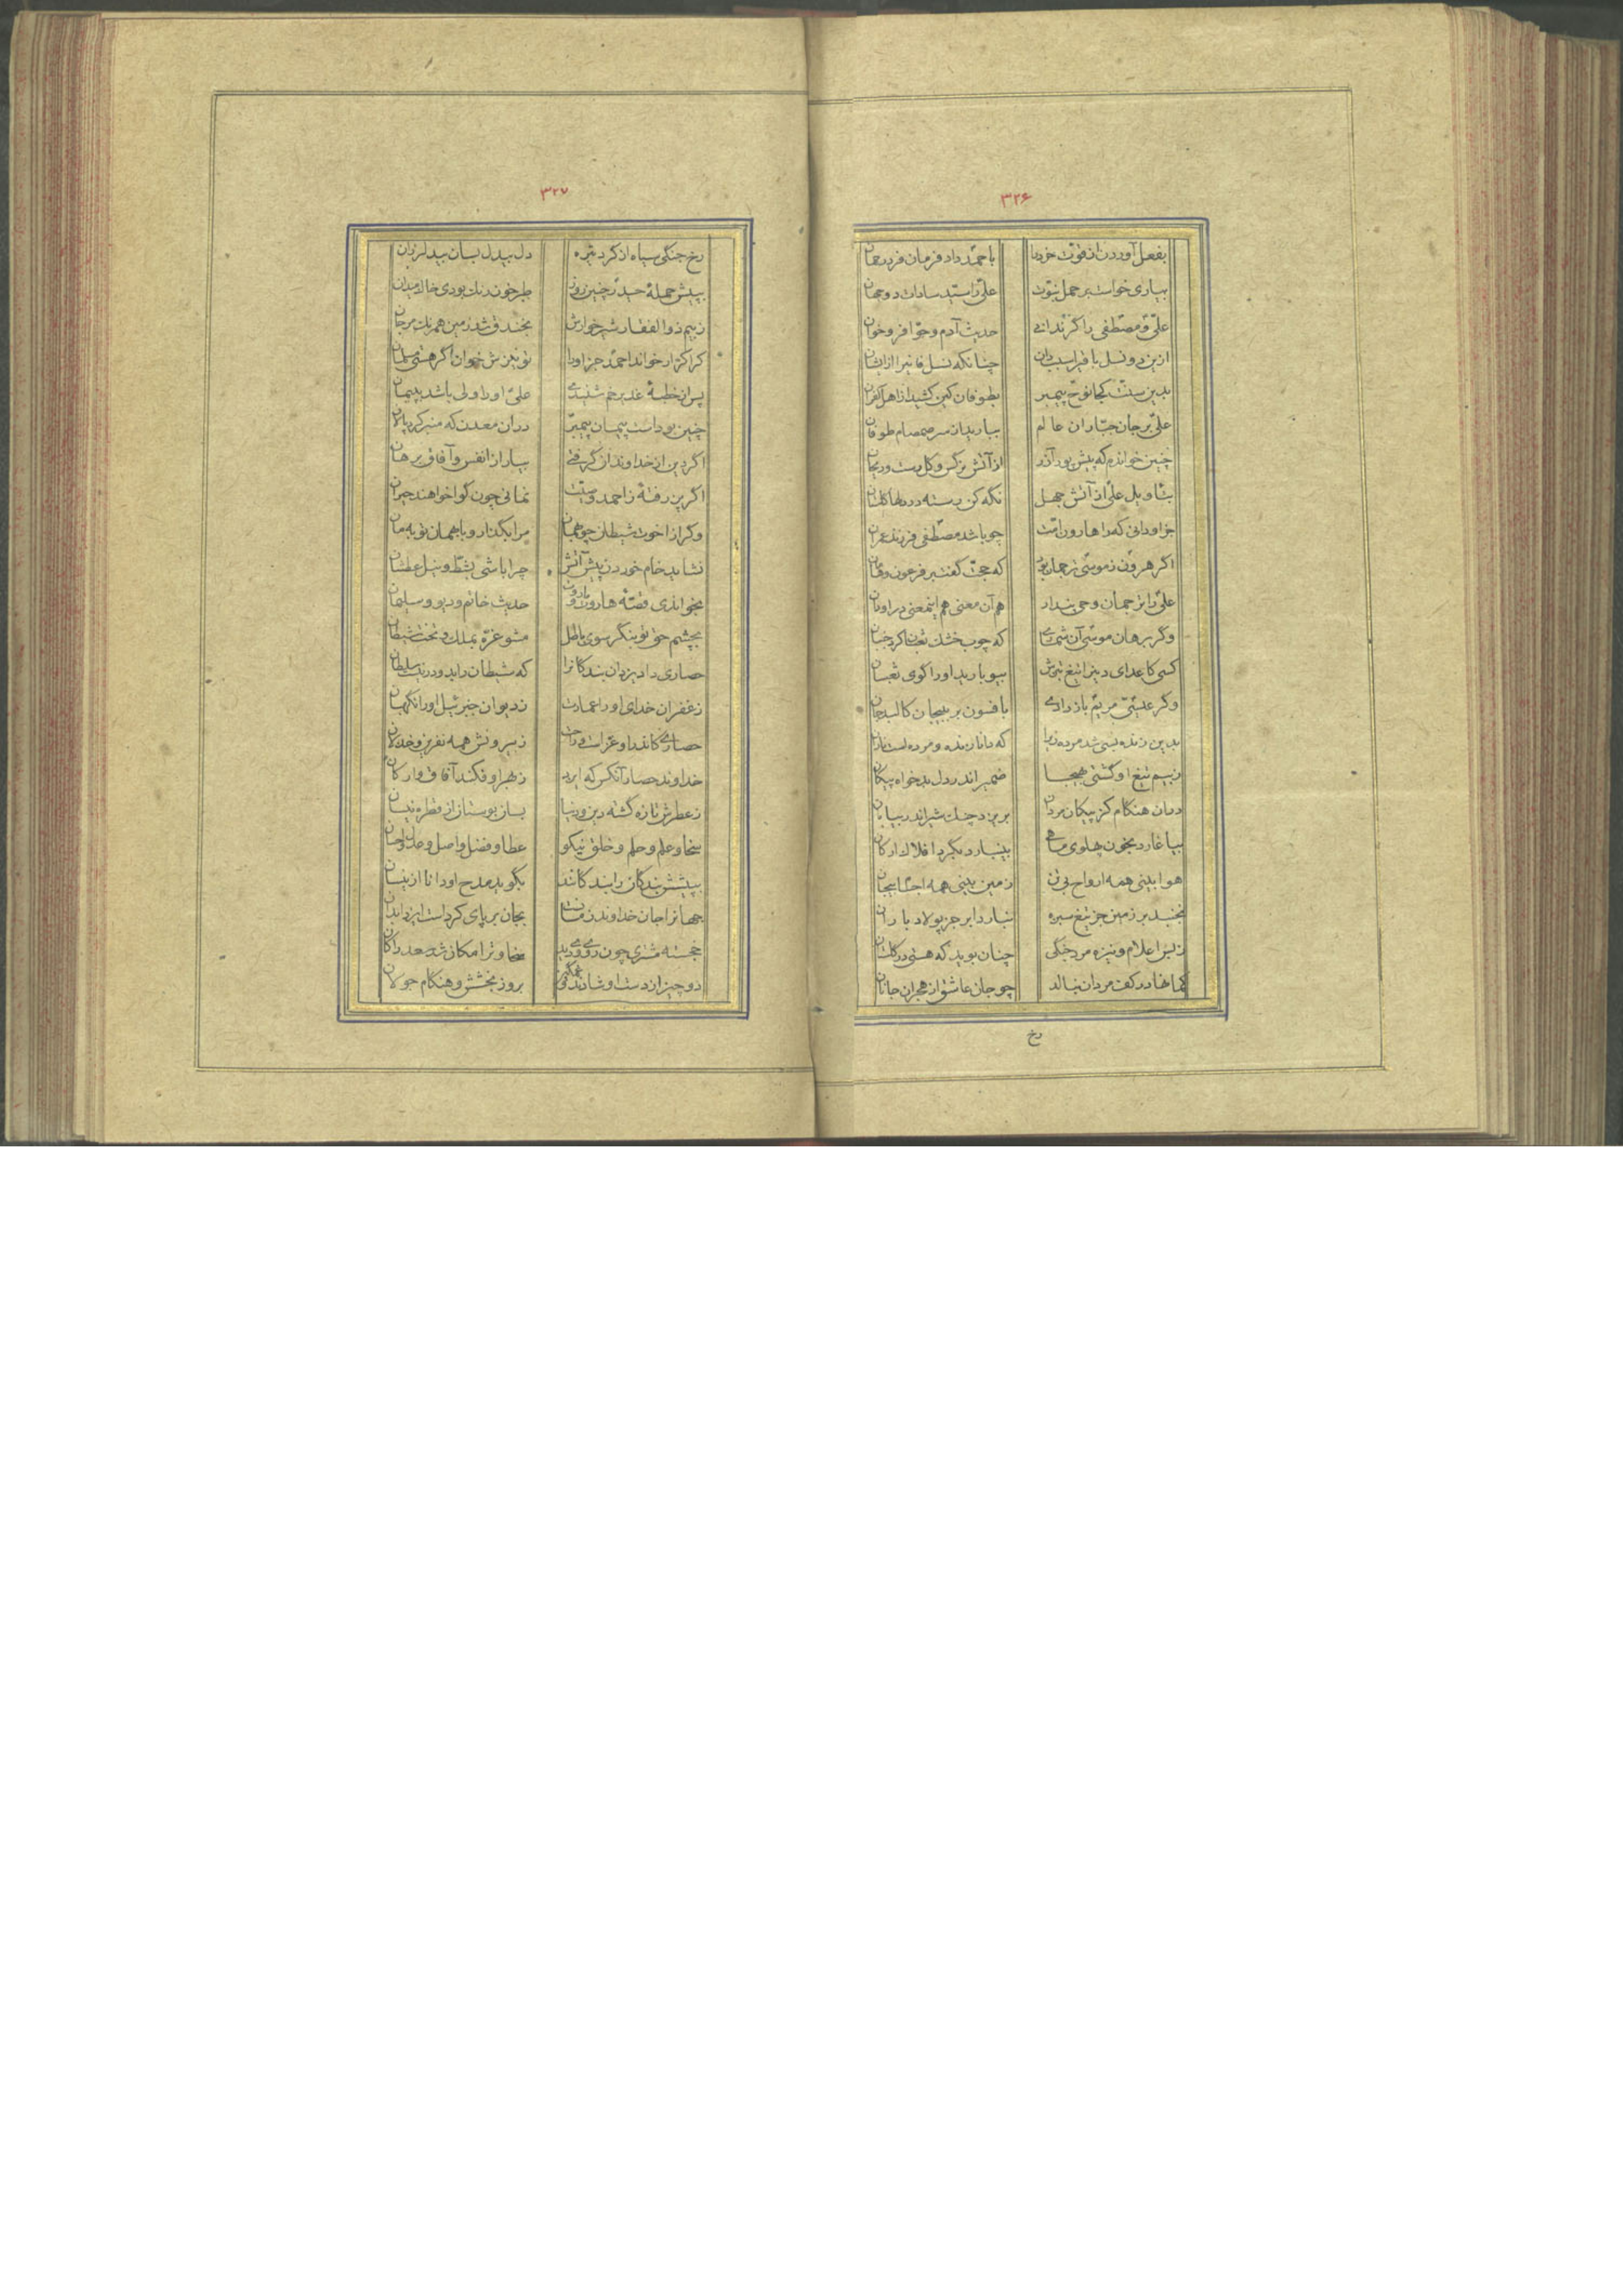 ۳۲۶
بفعل آوردن از قوت خرد را با حمد داد فرمان فرد رحمان
بیاری خواست بر حمل نبوت علی را سید سادات دو جهان
علی و مصطفی را گر ندانی حدیث آدم و حوا فرو خوان
ازین دو نسل باقی است دان چنانکه نسل فانی را از ایشان
بدین سنت کجا نوح پیمبر بطوفان کین کشید از اهل کفران
علی بر جان جباران عالم ببارید از سر صمصام طوفان
چنین خواندم که پیش پور آذر از آتش نرگس و گل رست و ریحان
بتاویل علی از آتش جهل نگه کن رسته در دلها گلستان
جز او دانی که را هارون امت چو باشد مصطفی فرزند عمران
اگر هرون ز موسی ترجمان بود که حجت گفت بر فرعون و هامان
علی را ترجمان وحی بندار هم آن معنی هم اینمعنی در او دان
وگر برهان موسی آن شمری که چوب خشک ثعبان کرد
کسی کاعدای دین را تیغ تیزش بیوبارید او را گوی ثعبان
وگر عیسی مریم باز دادی بافسون بر بیجان کالبد جان
بدین زنده بسی شد مرده زیرا که دانا زنده و مرده است نادان
ز بیم تیغ او گشتی بهیجا ضمیر اندر دل بدخواه پیکان
دران هنگام کز پیکان مردان بریزد چنگ شیر اندر بیابان
بیاغارد بخون پهلوی ماهی بینبارد بگرد افلاک ارکان
هوا بینی همه ارواح بی تن زمین بینی همه اجساد بیجان
نخندد بر زمین جز تیغ سبزه نبارد ابر جز پولاد باران
ز بس اعلام و نیزه مرد جنگی چنان بوید که هستی در گلستان
کمانها در کف مردان بنالد چو جان عاشق از هجران جانان
رخ
۳۲۷
رخ جنگی سیاه از گرد تیره دل بیدل بسان بید لرزان
بپیش حمله حیدر چنین روز طبرخون رنگ بودی خاک میدان
ز بیم ذوالفقار شیر خوارش بخندق شد زمین همرنگ مرجان
کرا کرار خواند احمد جز او را تو نیزش خوان اگر هستی مسلمان
پس از خطبه غدیر خم شنیدی علی او را ولی باشد بپیمان
چنین بود است پیمان پیمبر دران معدن که منبر کرد پالان
اگر دین از خداوندان گرفتی بیار از انفس و آفاق برهان
اگر بررفته ز احمد و سنت نمانی چون گوا خواهند حیران
وگر از اخوت شیطان چو همیان مرا بگذار و با همان تو به مان
نشاید خام خوردن پیش آتش چرا باشی بشط و نیل عطشان
بخواندی قصه هارون و قارون حدیث خاتم و دیو و سلیمان
بچشم حق تو بنگر سوی باطل مشو غره بملک و تخت شیطان
حصاری داد یزدان بندگانرا که شیطان را بد و در نیست سلطان
ز غفران خدای او را عمارت ز دیوان جبرئیل او را نگهبان
حصاری کاندرو عز است و راحت ز بیرونش همه نفرین و خذلان
خداوند حصار آنکس که ایزد ز بهر او فکند آفاق و ارکان
ز عطرش تازه گشته دین و دنیا بسان بوستان از قطره نیسان
سخا و علم و حلم و خلق نیکو عطا و فضل و اصل و عدل و احسان
بپیشش بندگان را بندگانند بگوید مدح او دانا ازینسان
جهانرا جان خداوند زمانست بجان بر پای کرد است ایزد ابدان
خجسته مشتری چون روی وی دید سخا و ترا مکان شد
دو چیز از دست او شادند و غمگین بروز بخشش و هنگام جولان